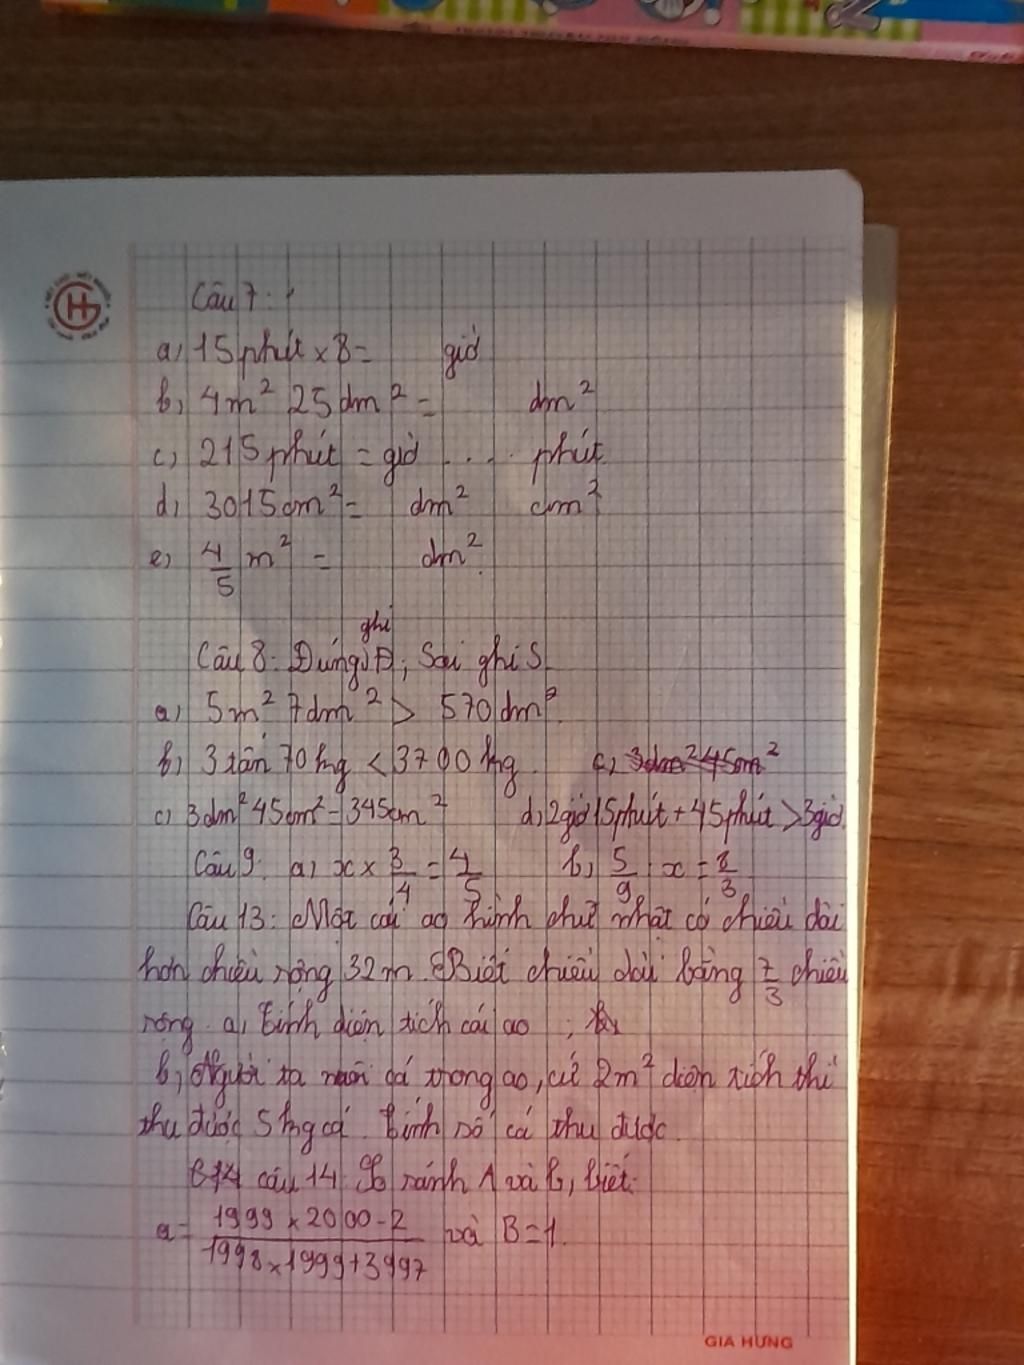 Câu 7:
a, 15 phút x 8 = giờ
b, 4m² 25 dm² = dm²
c, 215 phút = giờ .... phút
d, 3015 cm² = dm² cm²
e, 4/5 m² = dm²
ghi
Câu 8: Đúng Đ, Sai ghi S
a, 5m² 7dm² > 570 dm²
b, 3 tấn 70 kg < 3700 kg c, 3dm² 45cm²
c, 3dm² 45cm² = 345cm² d, 2giờ 15phút + 45phút > 3giờ
Câu 9: a, x × 3/4 = 4/5 b, 5/9 : x = 8/3
Câu 13: Một cái ao hình chữ nhật có chiều dài
hơn chiều rộng 32m. Biết chiều dài bằng 7/3 chiều
rộng. a, tính diện tích cái ao;
b, Người ta nuôi cá trong ao, cứ 2m² diện tích thì
thu được 5kg cá. tính số cá thu được.
câu 14: So sánh A và b, biết:
a = 1999 x 2000 - 2 / 1998 x 1999 + 3997 và B = 1.
GIA HƯNG